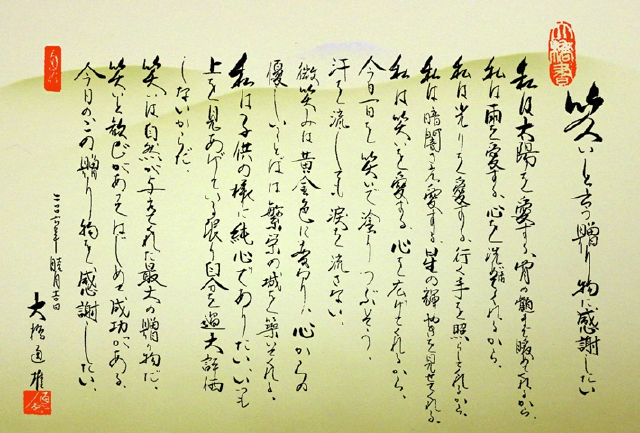 大橋書
笑いと言う贈り物に感謝したい
私は太陽を愛する、骨の髄まで暖めてくれるから、
私は雨を愛する、心を洗くれるから、
私は光りを愛する、行く手を照してくれるから、
私は暗闇さえ愛する、星の輝やきを見せてくれる、
私は笑いを愛する、心を広げてくれるから、
今日一日を笑いで塗りつぶそう、
汗を流しても涙を流さない、
微笑みは黄金色に変わり、心からの
優しいことばは繁栄の城を築いてくれる、
私は子供の様に純心でありたい、いつも
上を見あげている限り自分を過大評価
しないからだ、
笑いは自然が与えてくれた最大の贈り物だ、
笑いと歓びがあってはじめて成功がある、
今日のこの贈り物を感謝したい、
二〇〇六年 睦月吉日
大橋通雄